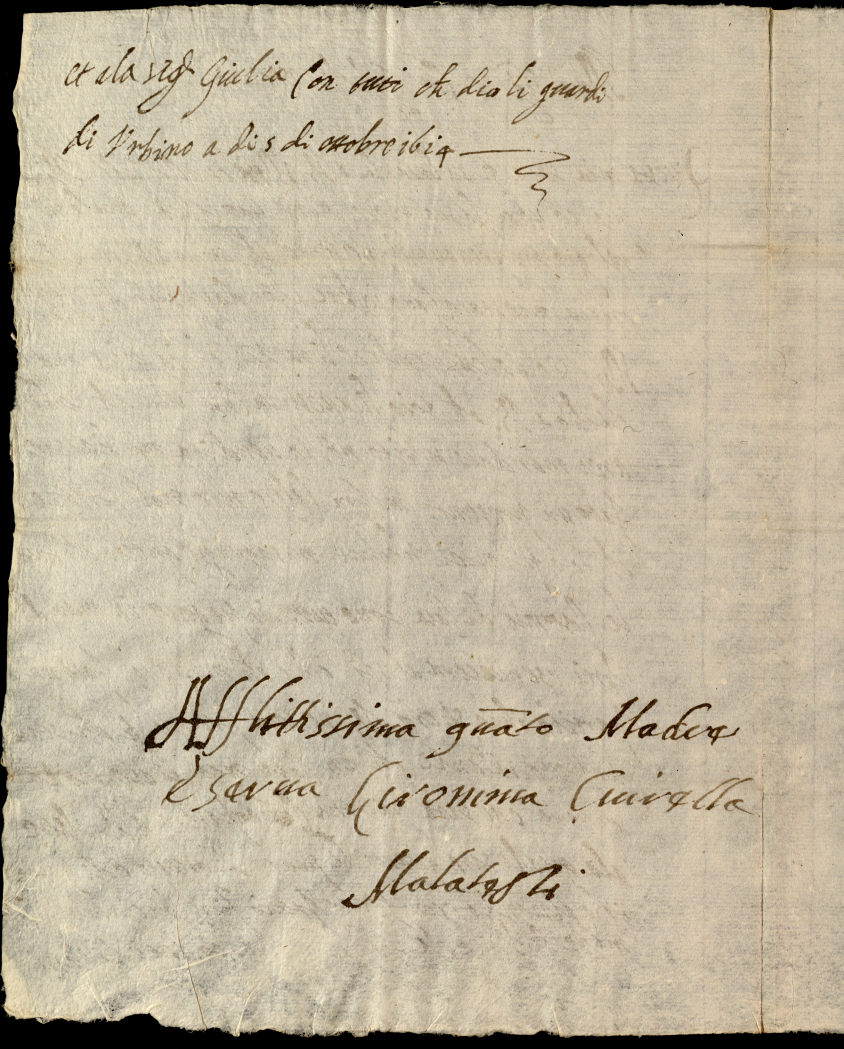 et ala sigra Giulia Con tuti ch dio li guardi
di Urbino a di 5 di ottobre 1614
Afflittissima quāto Madre
E serua Gironima Ciirella
Malatesti